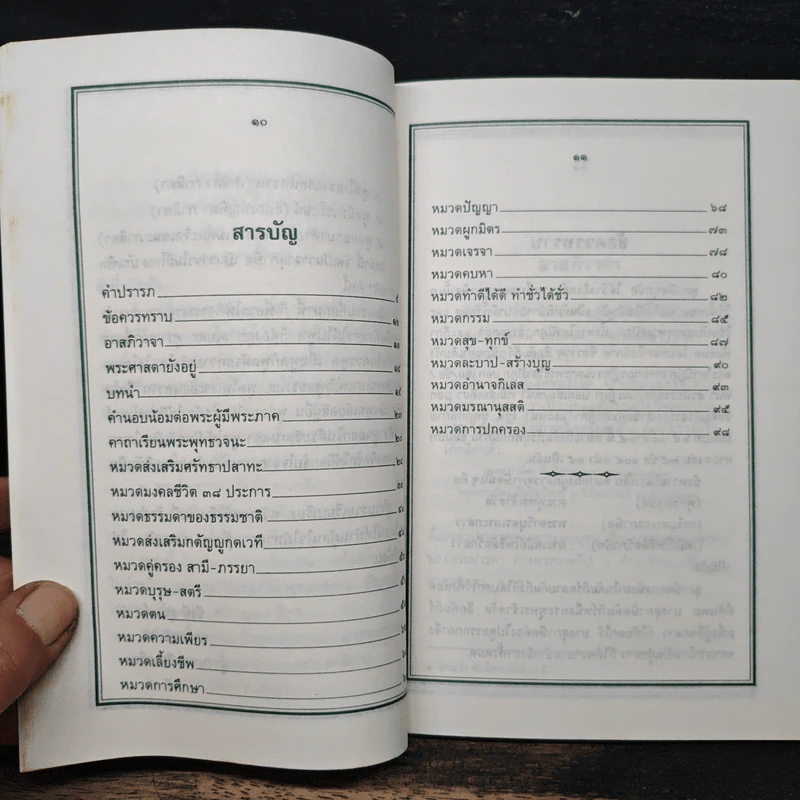 ๑๐
สารบัญ
คำปรารภ
ข้อควรทราบ
อาสภิวาจา
พระศาสดายังอยู่
บทนำ
คำนอบน้อมต่อพระผู้มีพระภาค
คาถาเรียนพระพุทธวจนะ
หมวดส่งเสริมศรัทธาปสาทะ
หมวดมงคลชีวิต ๓๘ ประการ
หมวดธรรมดาของธรรมชาติ
หมวดส่งเสริมกตัญญูกตเวที
หมวดคู่ครอง สามี-ภรรยา
หมวดบุรุษ-สตรี
หมวดตน
หมวดความเพียร
หมวดเลี้ยงชีพ
หมวดการศึกษา
๑๑
หมวดปัญญา ๖๘
หมวดผูกมิตร ๗๓
หมวดเจรจา ๗๘
หมวดคบหา ๘๐
หมวดทำดีได้ดี ทำชั่วได้ชั่ว ๘๒
หมวดกรรม ๘๔
หมวดสุข-ทุกข์ ๘๗
หมวดละบาป-สร้างบุญ ๙๐
หมวดอำนาจกิเลส ๙๓
หมวดมรณานุสสติ ๙๕
หมวดการปกครอง ๙๘